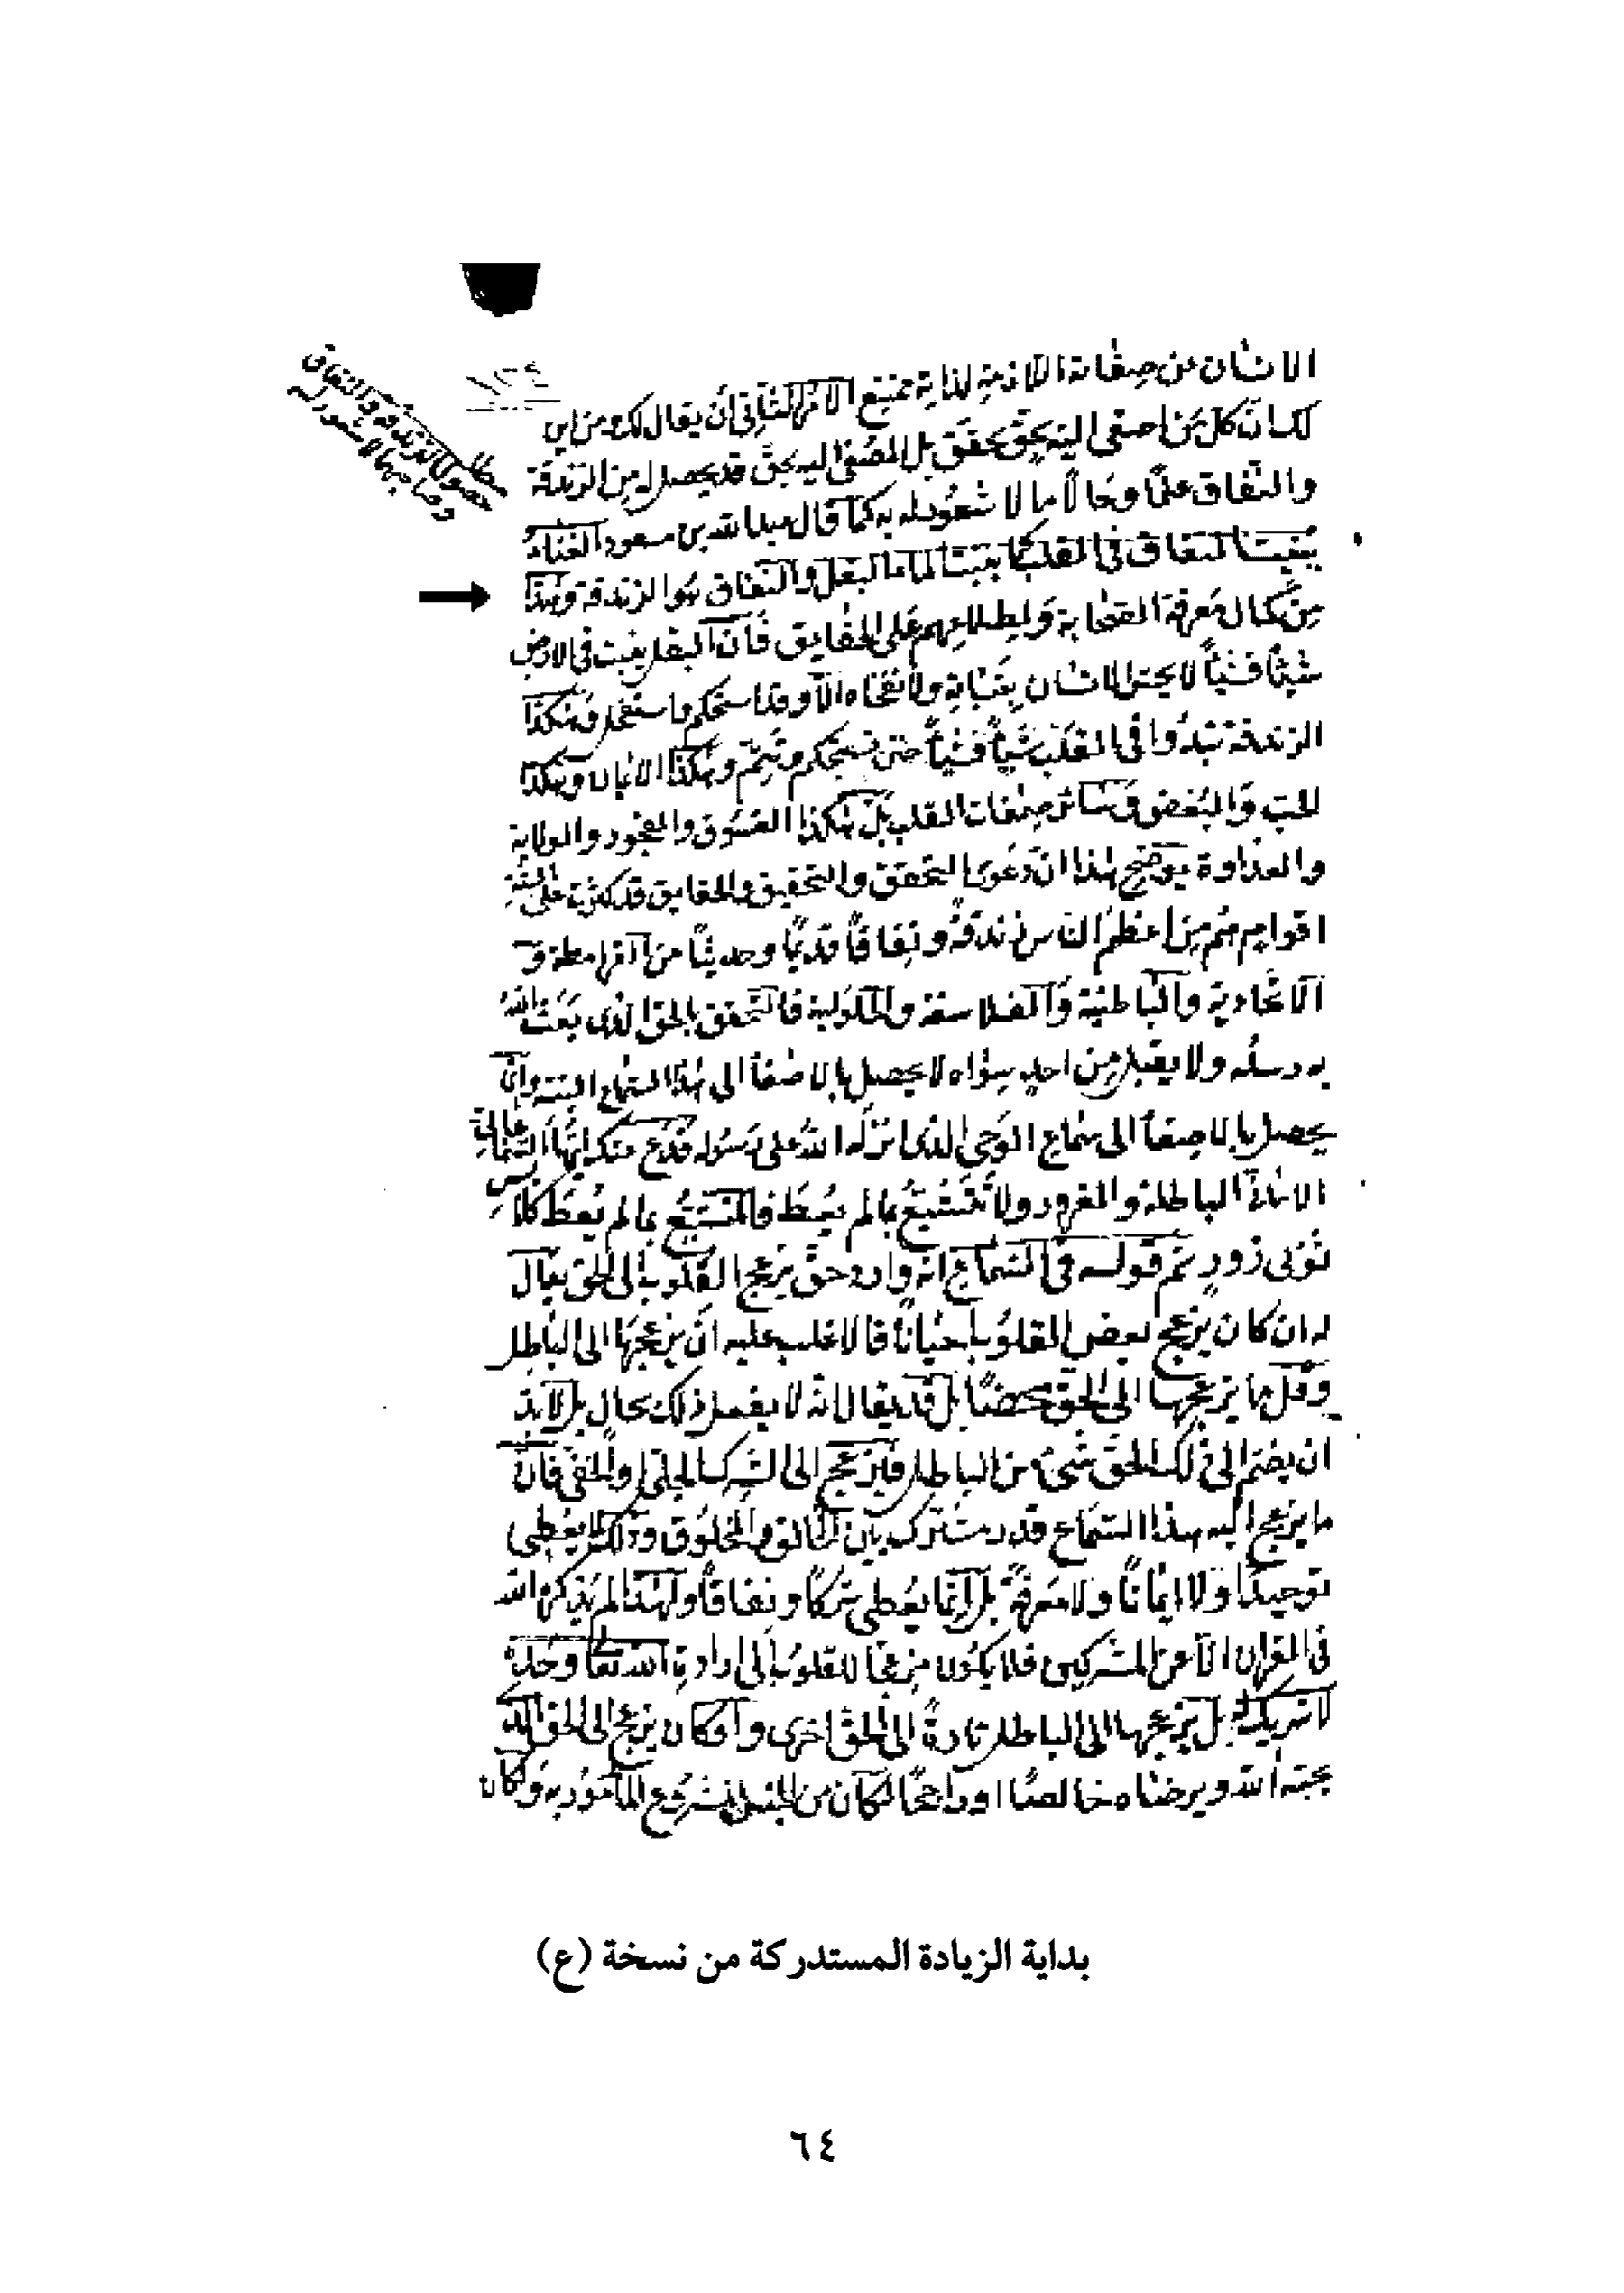 الانسان من صفاته اللازمة لذاته ممتنع الامر الثاني أن يقال لك من اين
لك ان كل من اصغى اليه بحق محقق بل المصغي اليه بحق قد يحصل له من الزندقة
والنفاق علما وحالا ما لا شعور له به كما قال عبد الله بن مسعود الغناء
ينبت النفاق في القلب كما ينبت الماء البقل والنفاق هو الزندقة وهذا
من كمال معرفة الصحابة وبطلاعهم على الحقايق فان البقل ينبت في الارض
شيئا فشيئا لا يحس الانسان بنباته ولانقاه الا وقد استحكم واستغلظ وهكذا
الزندقة تبدوا في القلب شيئا فشيئا حتى تستحكم وتتم وهكذا الايمان وهكذا
الحب والبغض وسائر صفات القلب بل هكذا الفسوق والفجور والولاية
والعداوة يوضح هذا ان دعوى التحقق والتحقيق والحقايق قد كثرت على السنة
اقوام هم من اعظم الناس زندقة ونفاقا قديما وحديثا من القرامطة و
الاتحادية والباطنية والفلاسفة والحلولية فالتحقق بالحق الذي بعث الله
به رسله ولا يقبل من احد سواه لا يحصل بالاصغاء الى هذا السماع البتة وانما
يحصل بالاصغاء الى سماع الوحي الذي انزله الله على رسوله فدع عنك ايها السماعاتي
الاماني الباطلة والغرور ولا تتشبع بما لم تعط فالمتشبع بما لم يعط كلابس
ثوبي زور ثم قوله في السماع انه وارد حق يزعج القلوب الى الحق يقال
له ان كان يزعج بعض القلوب احيانا فالاغلب عليه ان يزعجها الى الباطل
وقل ما يزعجها الى الحق محضا بل قد يقال انه لا يفعل ذلك بحال بل لابد
ان يضم الى ذلك الحق شيء من الباطل فيزعج الى الشرك الجلي او الخفي فان
ما يزعج اليه هذا السماع قدر مشترك بين الخالق والمخلوق وذلك لا يعطي
توحيدا ولا ايمانا ولا معرفة بل انما يعطي شركا ونفاقا ولهذا لم يذكره الله
في القران الا عن المشركين فلا يكون مزعجا للقلوب الى ارادة الله تعا وحده
لا شريك له بل يزعجها الى الباطل تارة والى الحق اخرى ولو كان يزعج الى الحق الذي
يحبه الله ويرضاه خالصا او راجحا لكان من الجنس المشروع المأمور به وكان
مطلب
حصول الزندقة والنفاق
وصاحبها لا شعور له
بداية الزيادة المستدركة من نسخة (ع)
٦٤